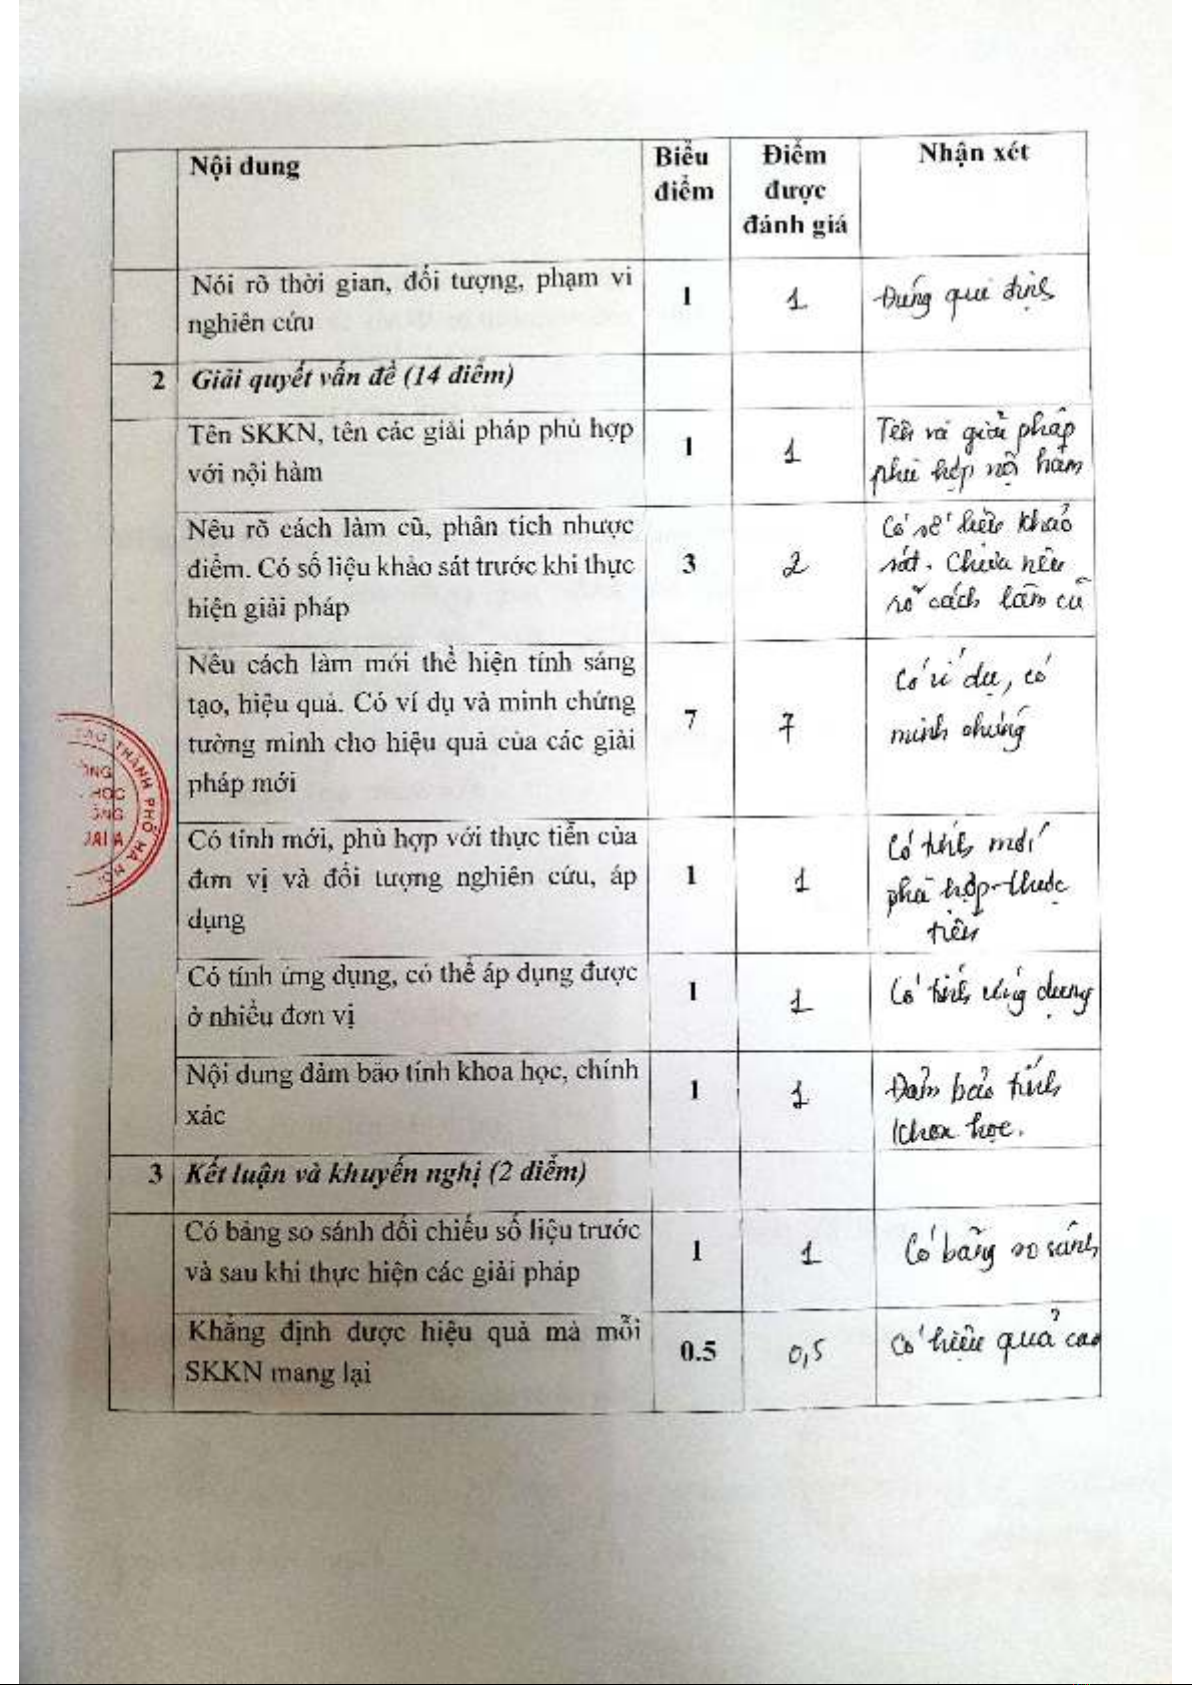 Nội dung
Biểu
điểm
Điểm
được
đánh giá
Nhận xét
Nói rõ thời gian, đối tượng, phạm vi
nghiên cứu
1
1
Đúng qui định
2
Giải quyết vấn đề (14 điểm)
Tên SKKN, tên các giải pháp phù hợp
với nội hàm
1
1
Tên và giải pháp
phù hợp nội hàm
Nêu rõ cách làm cũ, phân tích nhược
điểm. Có số liệu khảo sát trước khi thực
hiện giải pháp
3
2
Có số liệu khảo
sát. Chưa nêu
rõ cách làm cũ
Nêu cách làm mới thể hiện tính sáng
tạo, hiệu quả. Có ví dụ và minh chứng
tường minh cho hiệu quả của các giải
pháp mới
7
7
Có ví dụ, có
minh chứng
Có tính mới, phù hợp với thực tiễn của
đơn vị và đối tượng nghiên cứu, áp
dụng
1
1
Có tính mới
phù hợp thực
tiễn
Có tính ứng dụng, có thể áp dụng được
ở nhiều đơn vị
1
1
Có tính ứng dụng
Nội dung đảm bảo tính khoa học, chính
xác
1
1
Đảm bảo tính
khoa học.
3
Kết luận và khuyến nghị (2 điểm)
Có bảng so sánh đối chiếu số liệu trước
và sau khi thực hiện các giải pháp
1
1
Có bảng so sánh
Khẳng định được hiệu quả mà mỗi
SKKN mang lại
0.5
0,5
Có hiệu quả cao
THÀNH PHỐ HÀ NỘI
HỌC